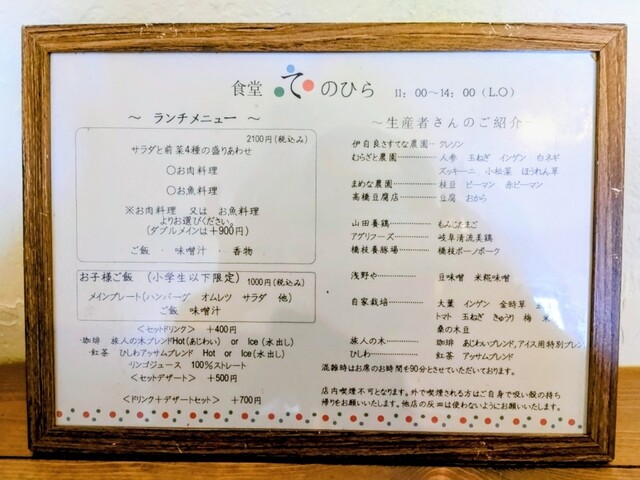 食堂 てのひら 11:00～14:00 (L.O)
～ ランチメニュー ～
2100円(税込み)
サラダと前菜4種の盛りあわせ
○お肉料理
○お魚料理
※お肉料理 又は お魚料理
よりお選びください。
(ダブルメインは＋900円)
ご飯 ・ 味噌汁 ・ 香物
お子様ご飯 (小学生以下限定) 1000円(税込み)
メインプレート(ハンバーグ オムレツ サラダ 他)
ご飯 味噌汁
<セットドリンク> ＋400円
・珈琲 旅人の木ブレンドHot(あじわい) or Ice(水出し)
・紅茶 ひしわアッサムブレンド Hot or Ice(水出し)
リンゴジュース 100%ストレート
<セットデザート> ＋500円
<ドリンク＋デザートセット> ＋700円
～生産者さんのご紹介～
伊自良さすてな農園‥ クレソン
むらざと農園………… 人参 玉ねぎ インゲン 白ネギ
ズッキーニ 小松菜 ほうれん草
まめな農園…………… 枝豆 ピーマン 赤ピーマン
高橋豆腐店…………… 豆腐 おから
山田養鶏……………… もみじたまご
アグリフーズ………… 岐阜清流美鶏
橋枝養豚場…………… 橋枝ボーノポーク
浅野や………………… 豆味噌 米糀味噌
自家栽培……………… 大葉 インゲン 金時草
トマト 玉ねぎ きゅうり 梅
桑の木豆
旅人の木……………… 珈琲 あじわいブレンド,アイス用特別ブレンド
ひしわ………………… 紅茶 アッサムブレンド
混雑時はお席のお時間を90分とさせていただいております。
店内喫煙不可となります。外で喫煙される方はご自身で吸い殻の持ち
帰りをお願いいたします。他店の灰皿は使わないようにお願いいたします。